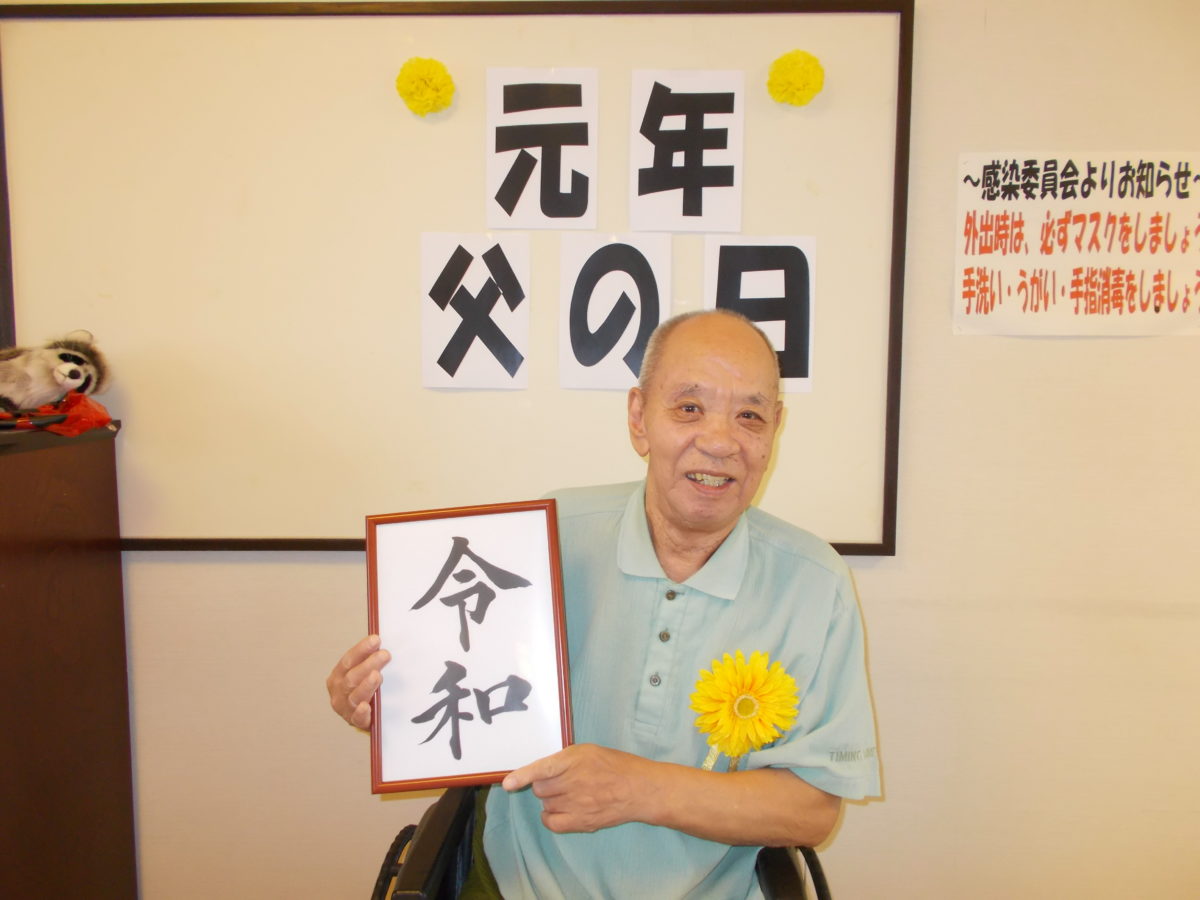 元年
父の日
~感染委員会よりお知らせ~
外出時は、必ずマスクをしましょう
手洗い・うがい・手指消毒をしましょう
令
和
TIMING